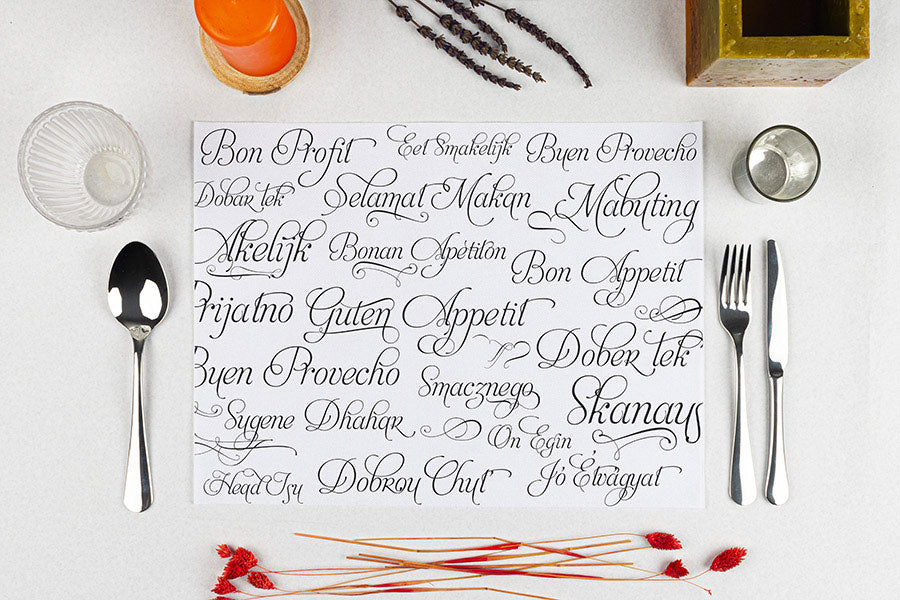 Bon Profit Eet Smakelijk Buen Provecho
Dobar tek Selamat Makan Mabuting
Akelijk Bonan Apétiton
Bon Appetit
Prijatno Guten Appetit
Dober tek
Buen Provecho Smacznego
Skanaus
Sygene Dhahar
On Egin
Head Isu Dobrou Chuť Jó Étvágyat